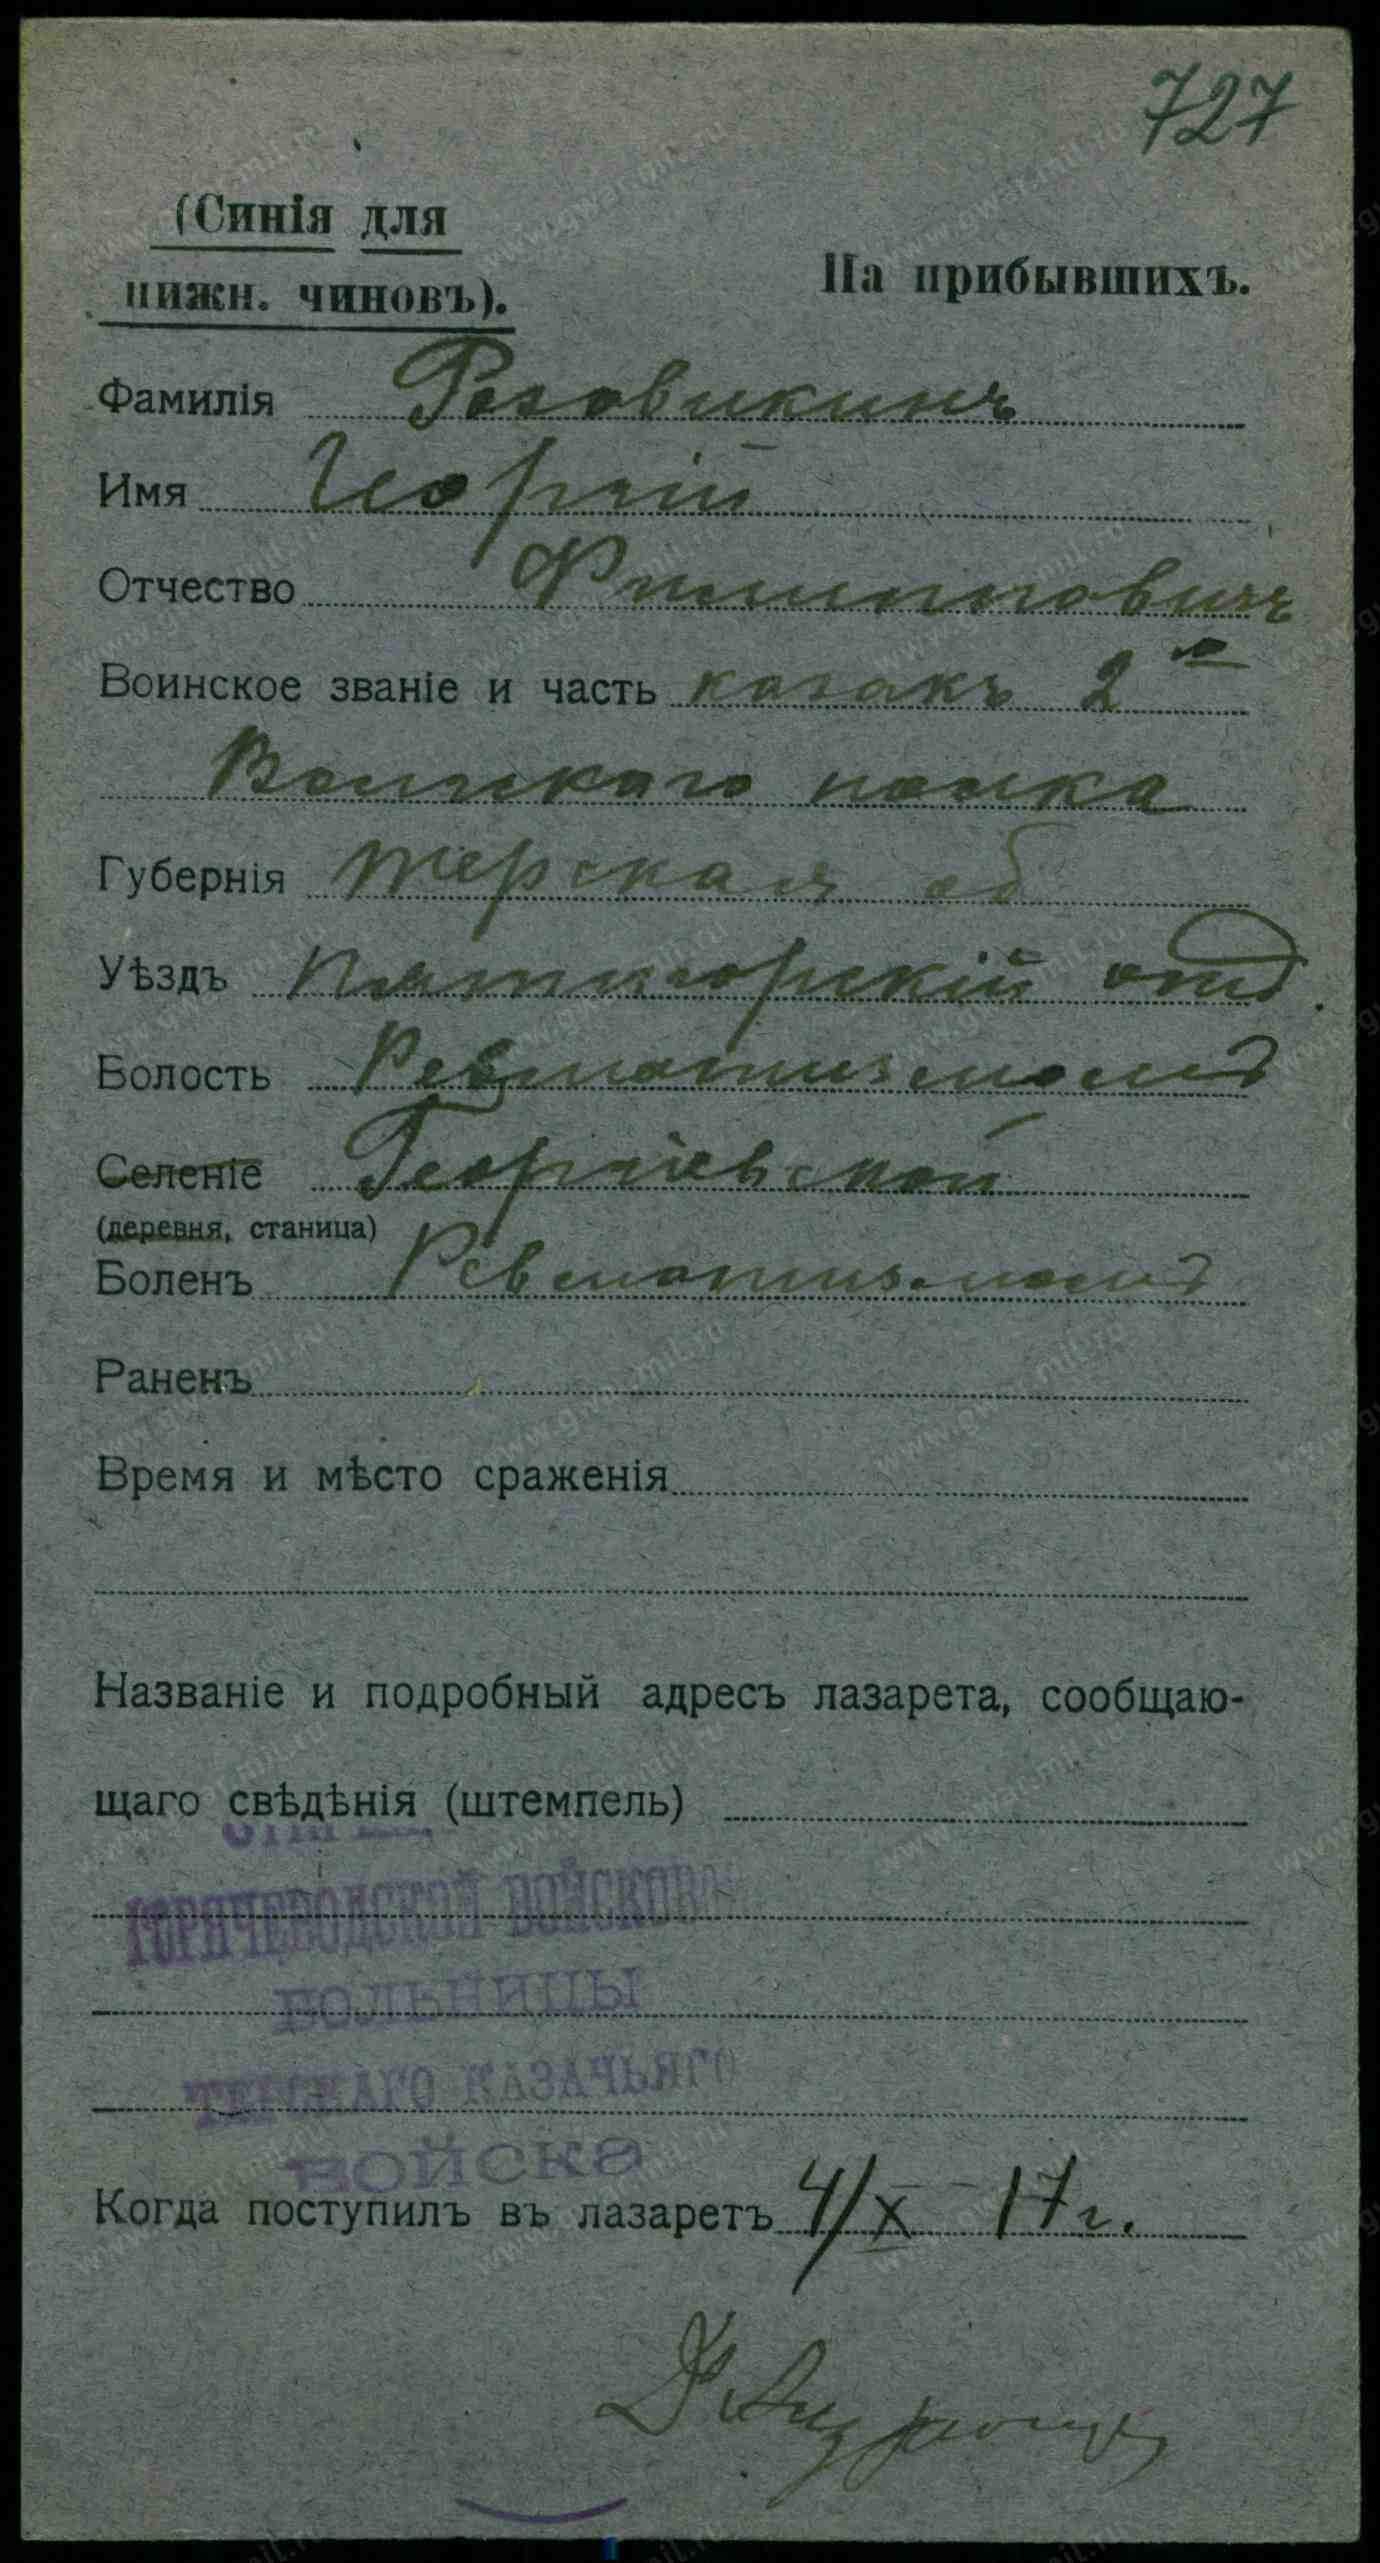 727
(Синія для
нижн. чиновъ).
На прибывшихъ.
Фамилія Розовикинъ
Имя Георгій
Отчество Филипповичъ
Воинское званіе и часть казакъ 2го
Волгскаго полка
Губернія Терская об
Уѣздъ Пятигорскій отд.
Волость Ревматизмомъ
Селеніе Георгіевской
(деревня, станица)
Боленъ Ревматизмомъ
Раненъ
Время и мѣсто сраженія
Названіе и подробный адресъ лазарета, сообщаю-
щаго свѣдѣнія (штемпель)
ГОРЯЧЕВОДСКОЙ ВОЙСКОВОЙ
БОЛЬНИЦЫ
ТЕРСКАГО КАЗАЧЬЯГО
ВОЙСКА
Когда поступилъ въ лазаретъ 4/X 17 г.